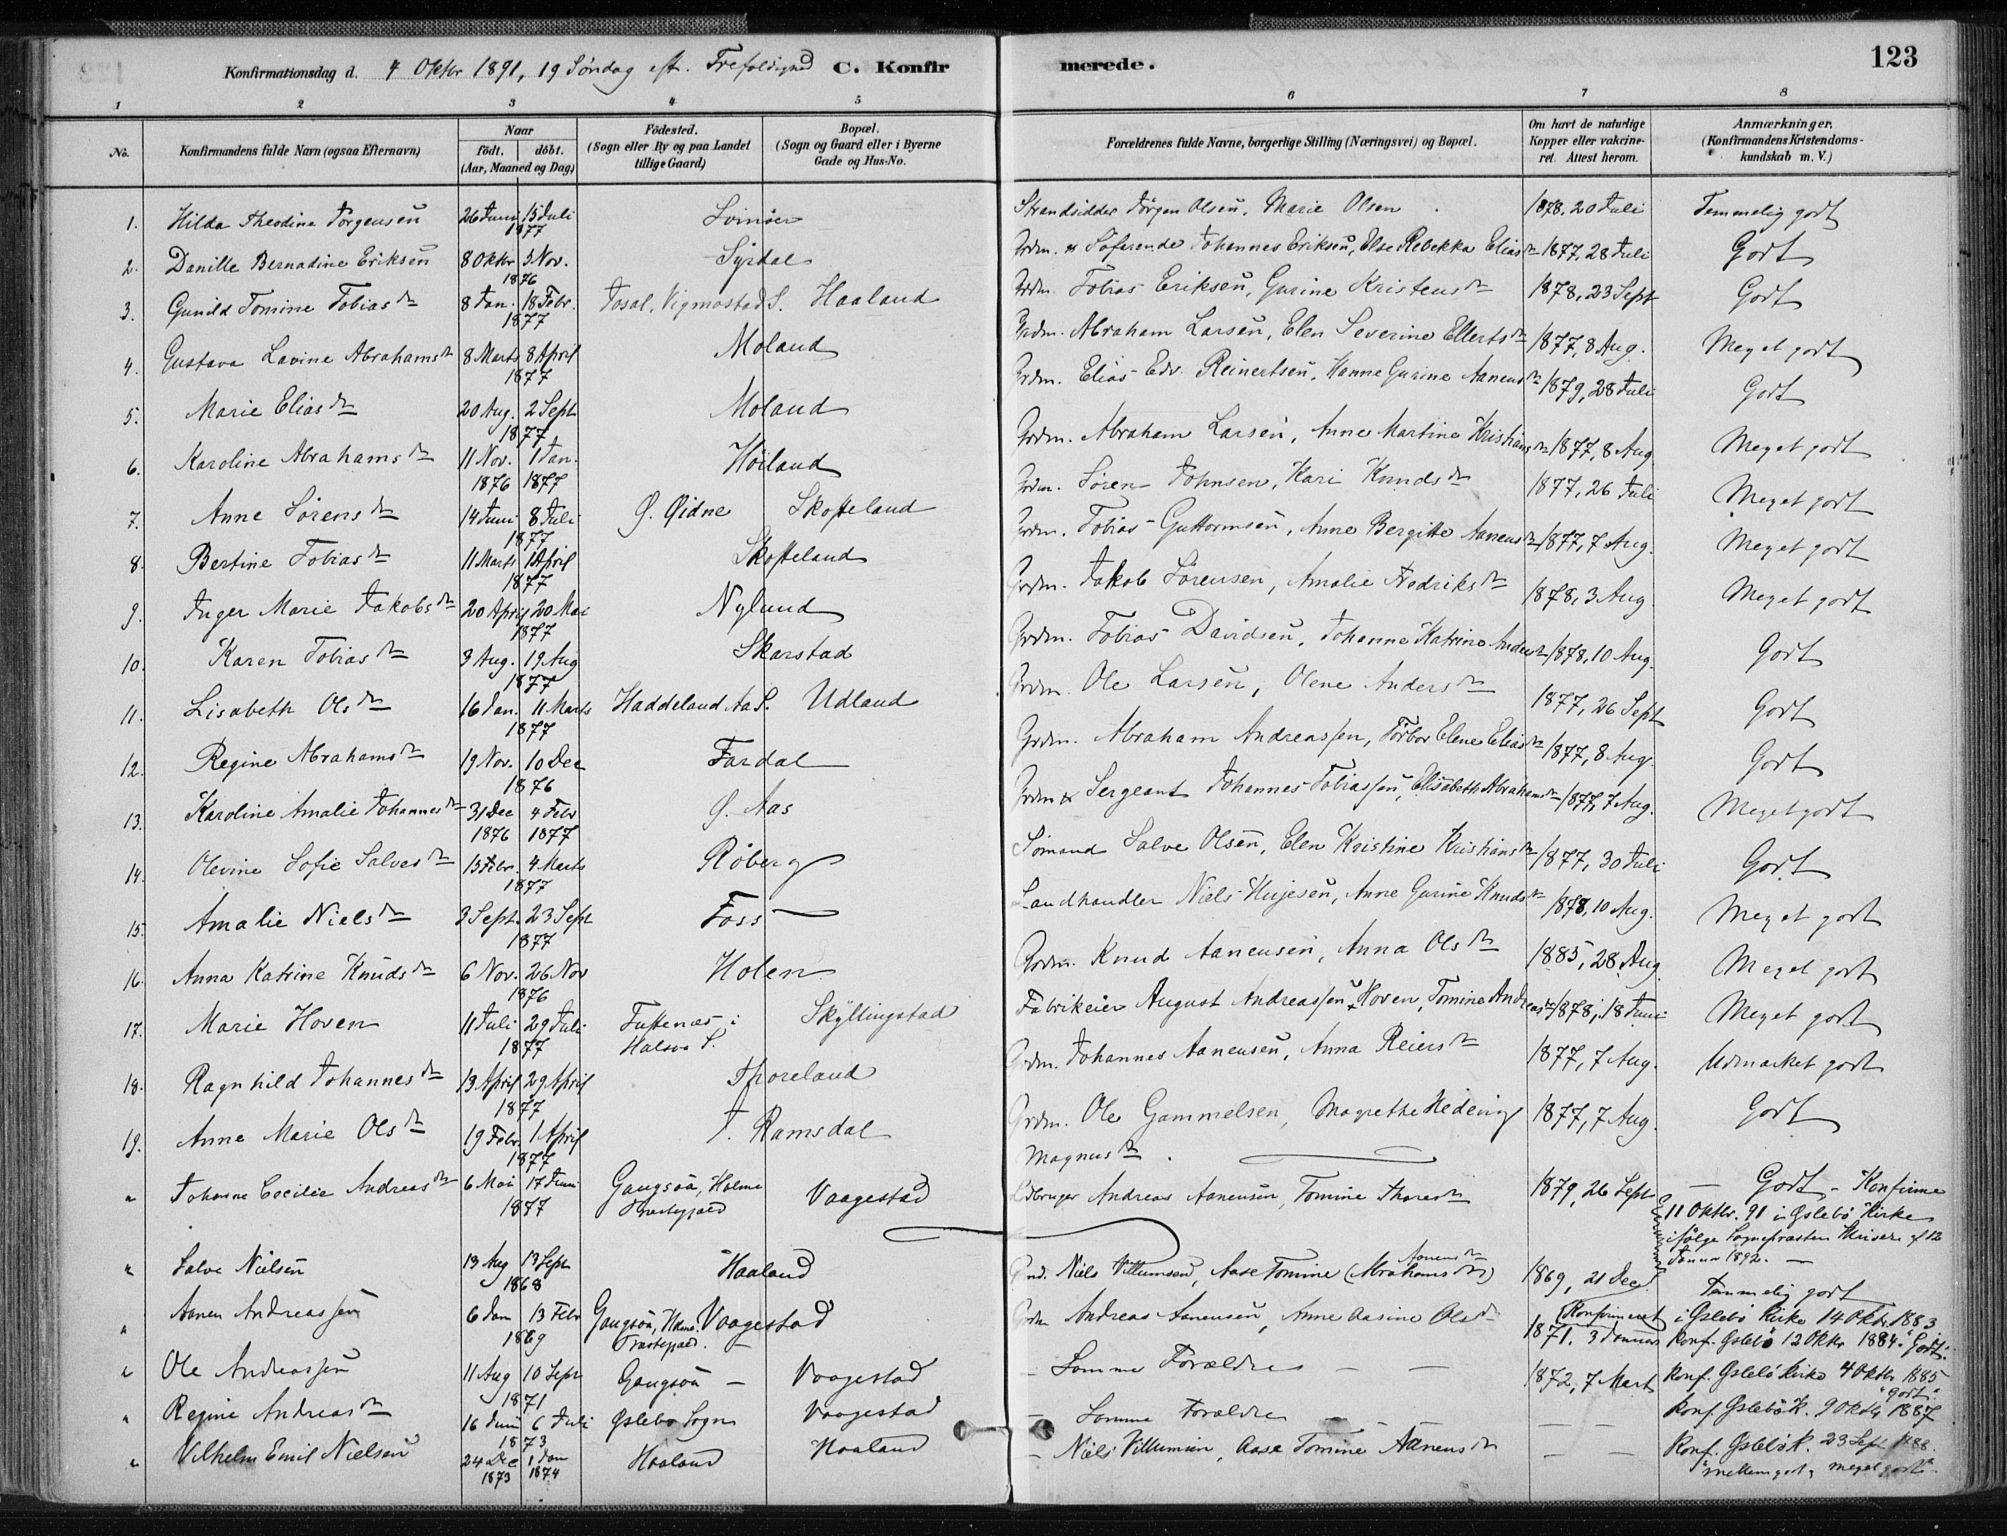 123
Konfirmationsdag d. 4 Oktbr 1891, 19 Søndag eft. Trefoldighed C. Konfirmerede.
1 2 3 4 5 6 7 8
No. Konfirmandens fulde Navn (ogsaa Efternavn) Naar födt. döbt. (Aar, Maaned og Dag) Födested. (Sogn eller By og paa Landet tillige Gaard) Bopæl. (Sogn og Gaard eller i Byerne Gade og Hus-No. Forældrenes fulde Navne, borgerlige Stilling (Næringsvei) og Bopæl. Om havt de naturlige Kopper eller vakcineret. Attest herom. Anmærkninger. (Konfirmandens Kristendomskundskab m. V.)
1. Hilda Theodine Jørgensen 26 Juni 15 Juli 1877 Svinöer Strandsidder Jørgen Olsen, Marie Olsen 1878, 20 Juli Temmelig godt
2. Danille Bernadine Eriksen 8 Oktbr 5 Nov. 1876 Syrdal Grdm. & Söfarende Johannes Eriksen, Else Rebekka Eliasdtr 1877, 28 Juli Godt
3. Gunild Tomine Tobiasdtr 8 Jan. 18 Febr. 1877 Josal, Vigmostad S. Haaland Grdm. Tobias Eriksen, Gurine Kristensdtr 1878, 23 Sept Godt
4. Gustava Lavine Abrahamsdtr 8 Marts 8 April 1877 Moland Grdm. Abraham Larsen, Elen Severine Ellertsdtr 1877, 8 Aug. Meget godt
5. Marie Eliasdtr 20 Aug. 2 Sept 1877 Moland Grdm. Elias Edv. Reinertsen, Hanne Gurine Aanensdtr 1879, 28 Juli Godt
6. Karoline Abrahamsdtr 11 Nov. 1876 1 Jan. 1877 Höiland Grdm. Abraham Larsen, Anne Martine Kristiansdtr 1877, 8 Aug. Meget godt
7. Anne Sörensdtr 14 Juni 8 Juli 1877 Ø. Øidne Skofteland Grdm. Sören Johnsen, Kari Knudsdtr 1877, 26 Juli Meget godt
8. Bertine Tobiasdtr 11 Marts 1 April 1877 Skofteland Grdm. Tobias Guttormsen, Anne Bergitte Aanensdtr 1877, 7 Aug. Meget godt
9. Inger Marie Jakobsdtr 20 April 20 Mai 1877 Nylund Grdm. Jakob Sörensen, Amalie Fredriksdtr 1878, 3 Aug. Meget godt
10. Karen Tobiasdtr 3 Aug. 19 Aug 1877 Skarstad Grdm. Tobias Davidsen, Johanne Katrine Andersdtr 1878, 10 Aug. Godt
11. Lisabeth Olsdtr 16 Jan. 11 Marts 1877 Haddeland Aa S. Udland Grdm. Ole Larsen, Olene Andersdtr 1877, 26 Sept Godt
12. Regine Abrahamsdtr 19 Nov. 10 Dec 1876 Fardal Grdm. Abraham Andreassen, Torbor Elene Eliasdtr 1877, 8 Aug. Godt
13. Karoline Amalie Johannesdtr 31 Dec 1876 4 Febr 1877 Ø. Aas Grdm & Sergeant Johannes Tobiassen, Elisabeth Abrahamsdtr 1877, 7 Aug. Meget godt
14. Olevine Sofie Salvesdtr 13 Febr. 4 Marts 1877 Röberg Sömand Salve Olsen, Elen Kristine Kristiansdtr 1877, 30 Juli Godt
15. Amalie Nielsdtr 3 Sept. 23 Sept 1877 Foss Landhandler Niels Hujesen, Anne Gurine Knudsdtr 1878, 10 Aug. Meget godt
16. Anna Katrine Knudsdtr 6 Nov. 26 Nov 1876 Holen Grdm. Knud Aanensen, Anna Olsdtr 1885, 28 Aug. Meget godt
17. Marie Hoven 11 Juli 29 Juli 1877 Tuftenæs i Halsaa S. Skyllingstad Fabrikeier August Andreassen Hoven, Tomine Andreasdtr 1878, 18 Juni Meget godt
18. Ragnhild Johannesdtr 13 April 29 April 1877 Thoreland Grdm. Johannes Aanensen, Anna Reiersdtr 1877, 7 Aug. Udmærket godt
19. Anne Marie Olsdtr 19 Febr. 1 April 1877 I. Ramsdal Grdm. Ole Gammelsen, Magrethe Hedevig Magnusdtr 1877, 7 Aug. Godt
" Johanne Cecilie Andreasdtr 6 Mai 17 Juni 1877 Gangsöa, Holme Præstegjæld Vaagestad Andreas Aanensen, Tomine Thoresdtr 1879, 26 Sept Godt - Konfirme 11 Oktbr. 91 i Øslebö Kirke ifölge Sognepræsten af 12 Januar 1892.
" Salve Nielsen 13 Aug 13 Sept 1868 Haaland Grd. Niels Villumsen, Aase Tomine (Abrahamsdtr) Aanensdtr 1869, 21 Dec Temmelig godt
" Aanen Andreassen 6 Jan 13 Febr 1869 Gangsöa, Holme Præstegjæld. Vaagestad Grdm Andreas Aanensen, Anne Aasine Olsdtr 1871, 3 Januar (Konfirmeret i Øslebö Kirke 14 Oktbr. 1883 Konf. Øslebö 12 Oktbr 1884. "Godt".
" Ole Andreassen 11 Aug 10 Sept 1871 Gangsöa Vaagestad Samme Forældre 1872, 7 Mart Konf. Øslebö Kirke 4 Oktbr 1885 "godt".
" Regine Andreasdtr 16 Juni 6 Juli 1873 Øslebö Sogn Vaagestad Samme Forældre Konf. Øslebö K. 9 Oktbr 1887
" Vilhelm Emil Nielsen 24 Dec 1873 1 Jan 1874 Haaland Haaland Niels Villumsen, Aase Tomine Aanensdtr Konf. Øslebö K. 23 Sept 1888. "mellem godt & meget godt"